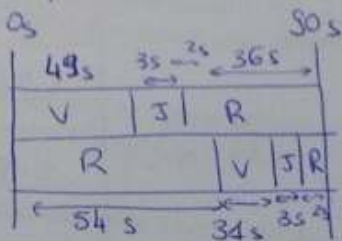 0s 90s
49s 3s 2s 36s
V J R
R V J R
54 s 31s 3s 2s